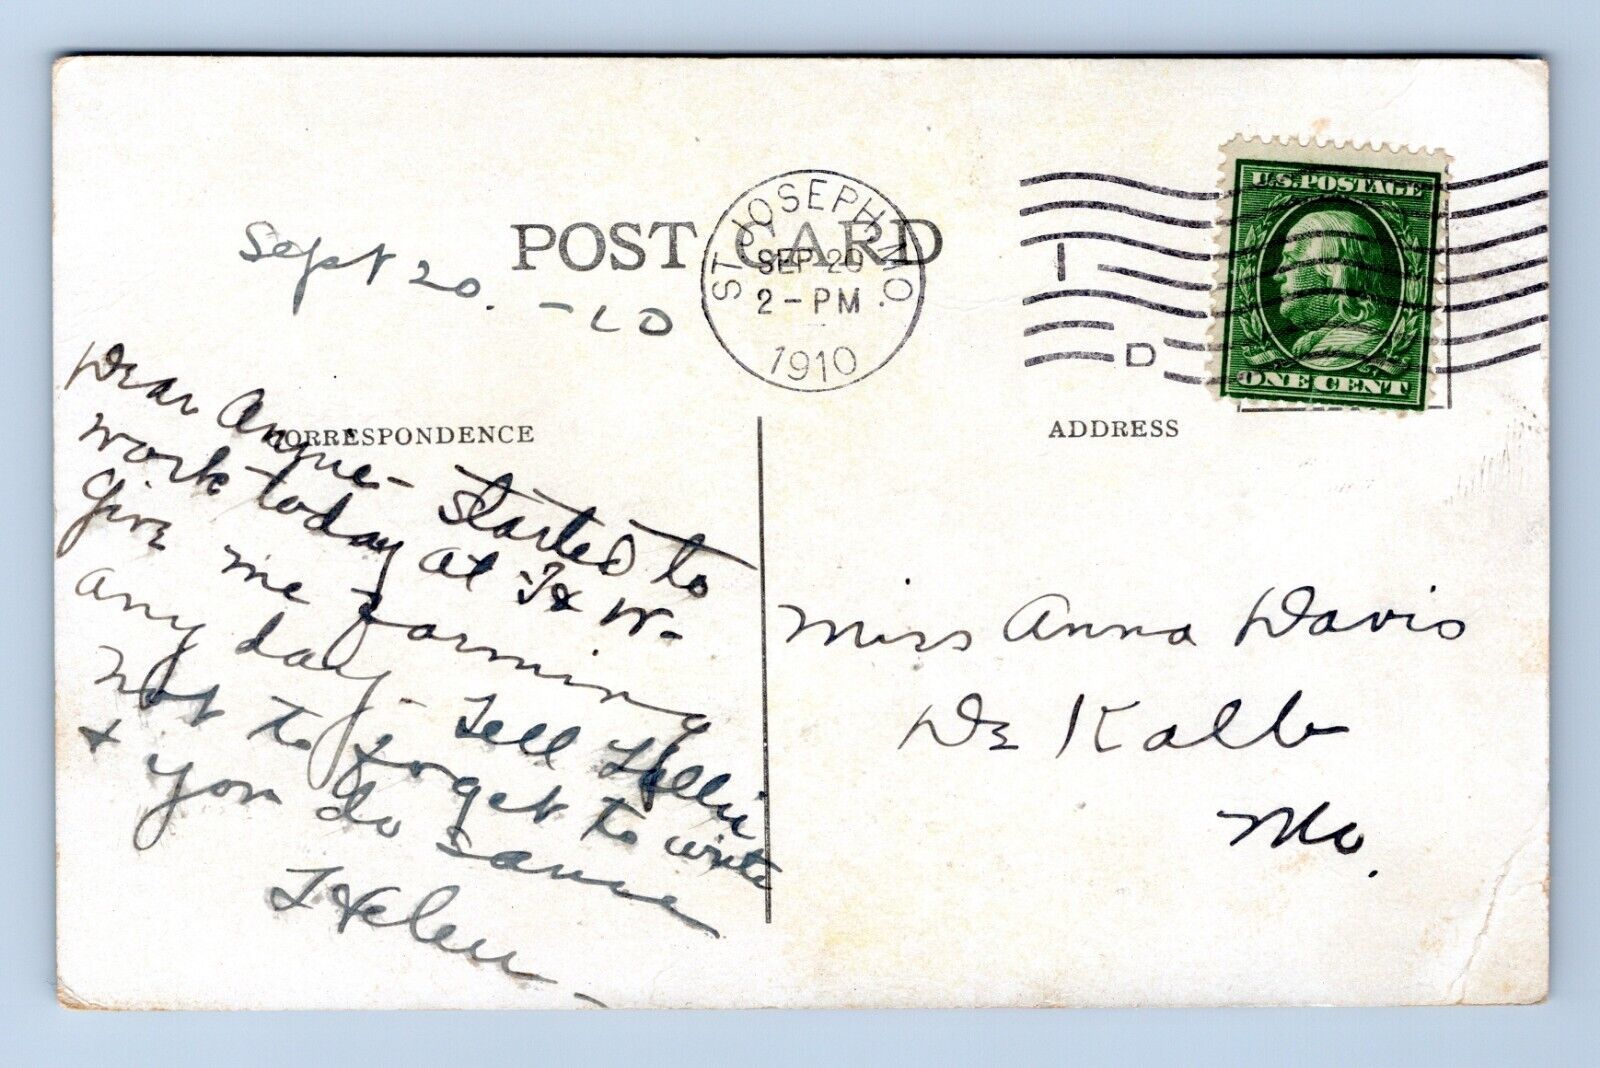 POST CARD
ST. JOSEPH, MO.
SEP 20
2-PM
1910
1
D
U.S. POSTAGE
ONE CENT
Sept 20. -10
CORRESPONDENCE
ADDRESS
Dear Anne - Started to
work today at
Give me farming
any day - Tell
not to forget to write
& you do same
Helen -
Miss Anna Davis
De Kalb
Mo.